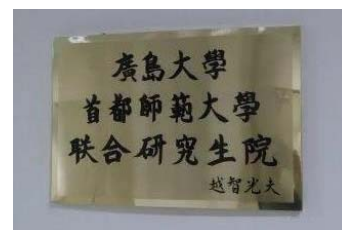 廣島大學
首都師範大學
联合研究生院
越智光夫